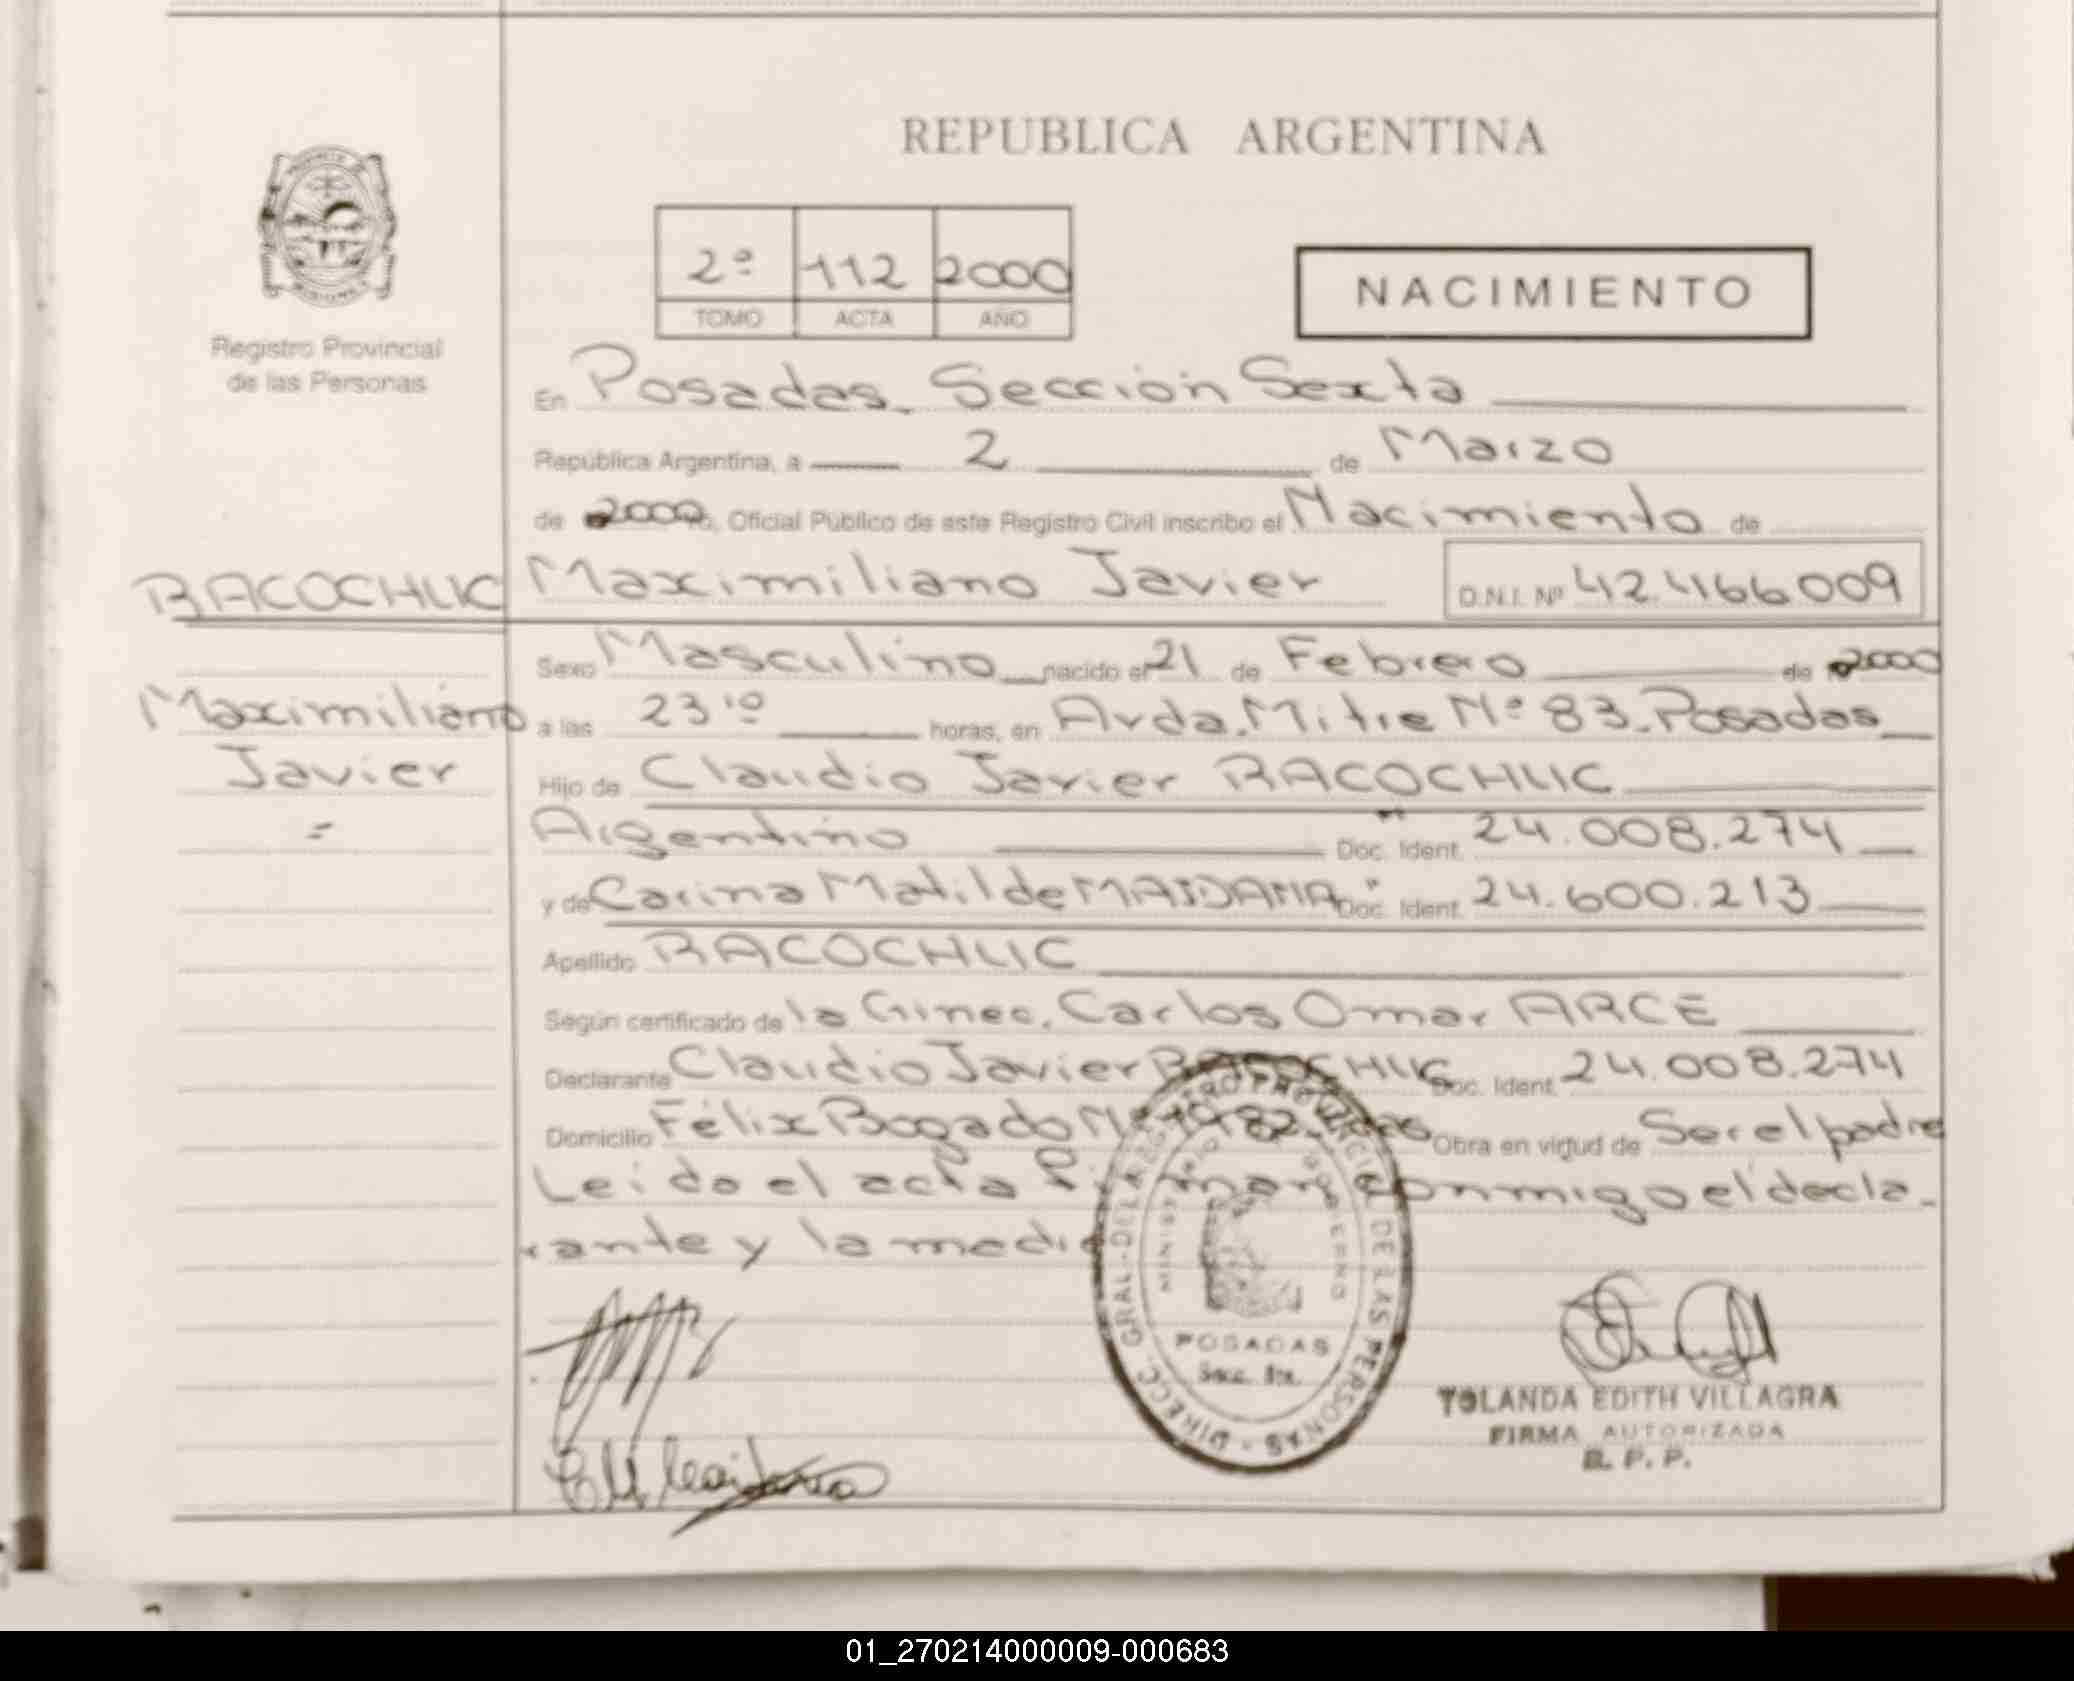 REPUBLICA ARGENTINA
2º 112 2000
TOMO ACTA AÑO
NACIMIENTO
Registro Provincial
de las Personas
En Posadas. Sección Sexta
República Argentina, a 2 de Marzo
de 2000, Oficial Público de este Registro Civil inscribo el Nacimiento de
RACOCHUC Maximiliano Javier D.N.I. Nº 42.466.009
Sexo Masculino nacido el 21 de Febrero de 2000
Maximiliano a las 23¹⁰ horas, en Avda. Mitre Nº 83. Posadas
Javier Hijo de Claudio Javier RACOCHUC
= Argentino Doc. Ident. 24.008.274
y de Carina Matilde MAIDANA Doc. Ident. 24.600.213
Apellido RACOCHUC
Según certificado de la Ginec. Carlos Omar ARCE
Declarante Claudio Javier RACOCHUC Doc. Ident. 24.008.274
Domicilio Félix Bogado Nº Obra en virtud de Ser el padre
Leido el acta conmigo el decla-
rante y la
DIRECC. GRAL. DEL REGISTRO PROVINCIAL DE LAS PERSONAS
MINISTERIO DE GOBIERNO
POSADAS
Secc.
YOLANDA EDITH VILLAGRA
FIRMA AUTORIZADA
R. P. P.
01_270214000009-000683